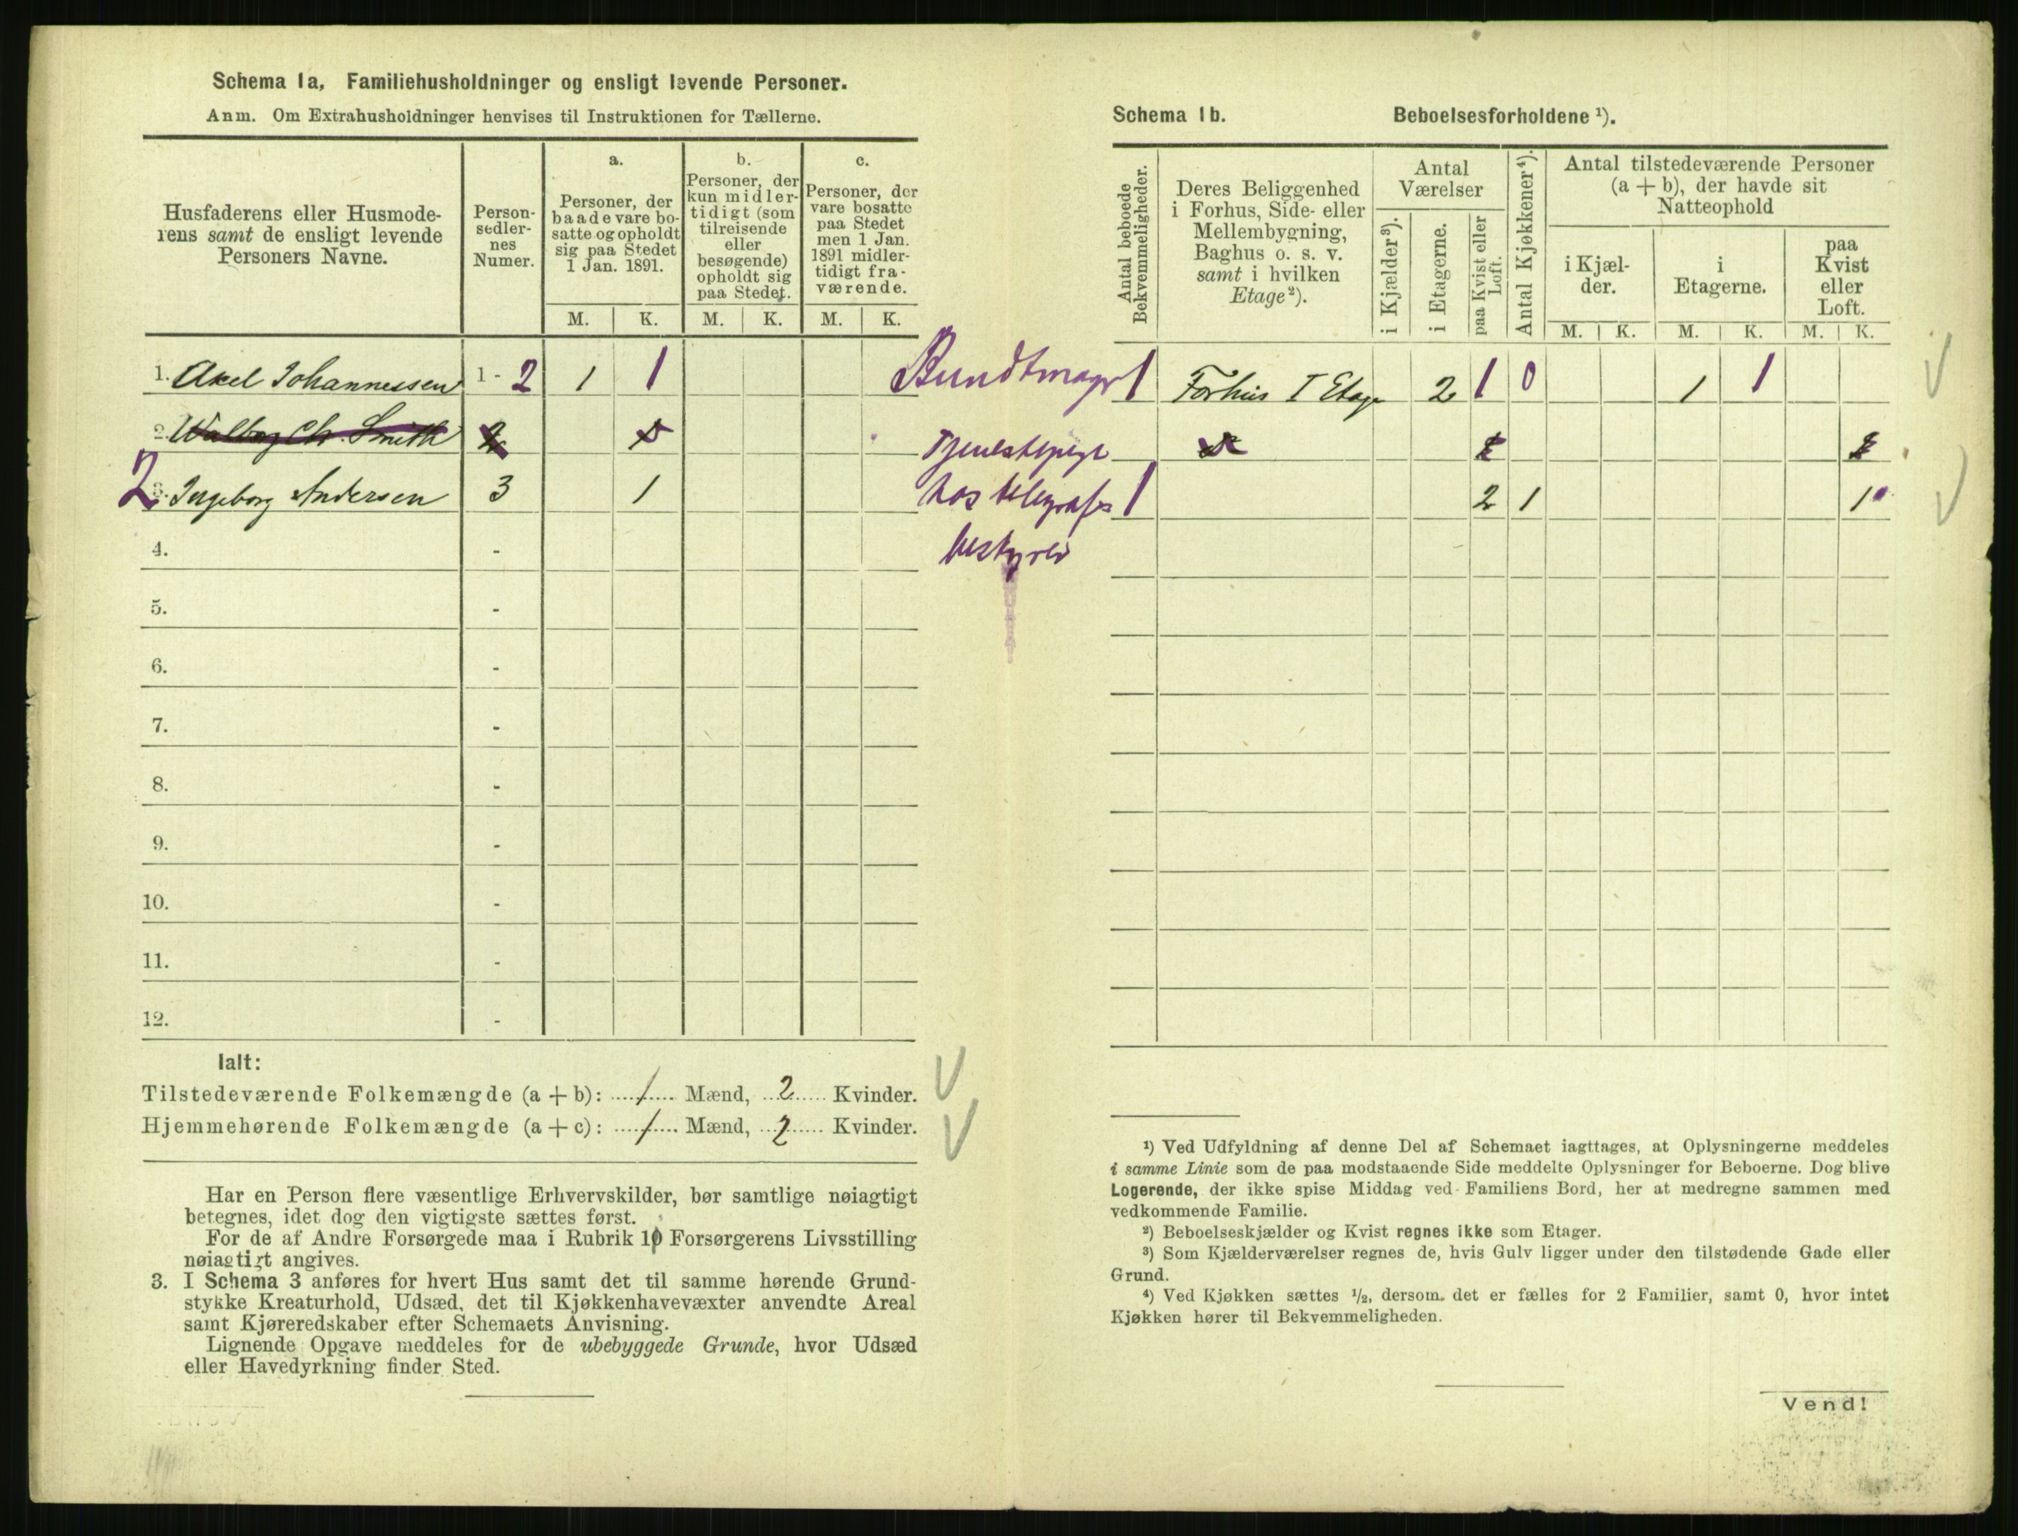 Schema 1a, Familiehusholdninger og ensligt levende Personer.
Anm. Om Extrahusholdninger henvises til Instruktionen for Tællerne.
Husfaderens eller Husmode-
rens samt de ensligt levende
Personers Navne.
Person-
sedler-
nes
Numer.
a.
Personer, der
baade vare bo-
satte og opholdt
sig paa Stedet
1 Jan. 1891.
b.
Personer, der
kun midler-
tidigt (som
tilreisende
eller
besøgende)
opholdt sig
paa Stedet.
c.
Personer, der
vare bosatte
paa Stedet
men 1 Jan.
1891 midler-
tidigt fra-
værende.
M. K. M. K. M. K.
1. Axel Johannessen 1 - 2 1 1
2. Walborg Chr. Smith 2
2 3. Ingeborg Andersen 3 1
4. -
5. -
6. -
7. -
8. -
9. -
10. -
11. -
12. -
Ialt:
Tilstedeværende Folkemængde (a + b): 1 Mænd, 2 Kvinder.
Hjemmehørende Folkemængde (a + c): 1 Mænd, 2 Kvinder.
Har en Person flere væsentlige Erhvervskilder, bør samtlige nøiagtigt
betegnes, idet dog den vigtigste sættes først.
For de af Andre Forsørgede maa i Rubrik 10 Forsørgerens Livsstilling
nøiagtigt angives.
3. I Schema 3 anføres for hvert Hus samt det til samme hørende Grund-
stykke Kreaturhold, Udsæd, det til Kjøkkenhavevæxter anvendte Areal
samt Kjøreredskaber efter Schemaets Anvisning.
Lignende Opgave meddeles for de ubebyggede Grunde, hvor Udsæd
eller Havedyrkning finder Sted.
Schema 1b. Beboelsesforholdene ¹).
Antal beboede
Bekvemmeligheder.
Deres Beliggenhed
i Forhus, Side- eller
Mellembygning,
Baghus o. s. v.
samt i hvilken
Etage²).
Antal
Værelser
i Kjælder³).
i Etagerne.
paa Kvist eller
Loft.
Antal Kjøkkener⁴).
Antal tilstedeværende Personer
(a + b), der havde sit
Natteophold
i Kjæl-
der.
i
Etagerne.
paa
Kvist
eller
Loft.
M. K. M. K. M. K.
Bundtmager 1 Forhus I Etage 2 1 0 1 1
Tjenestepige
hos telegraf 1 2 1 1
bestyrer
¹) Ved Udfyldning af denne Del af Schemaet iagttages, at Oplysningerne meddeles
i samme Linie som de paa modstaaende Side meddelte Oplysninger for Beboerne. Dog blive
Logerende, der ikke spise Middag ved Familiens Bord, her at medregne sammen med
vedkommende Familie.
²) Beboelseskjælder og Kvist regnes ikke som Etager.
³) Som Kjælderværelser regnes de, hvis Gulv ligger under den tilstødende Gade eller
Grund.
⁴) Ved Kjøkken sættes ½, dersom det er fælles for 2 Familier, samt 0, hvor intet
Kjøkken hører til Bekvemmeligheden.
Vend!